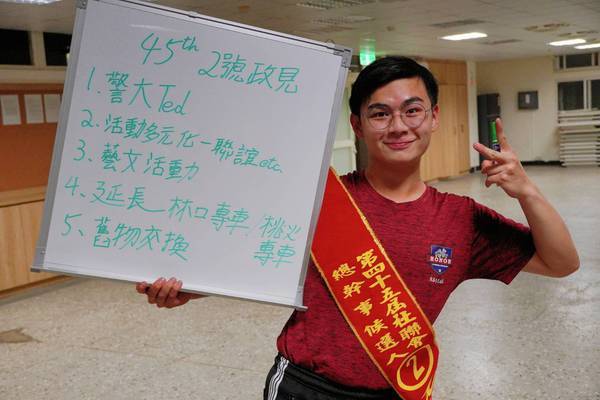 45th 2號政見
1. 警大Ted
2. 活動多元化-聯誼etc.
3. 藝文活動
4. 延長林口專車/桃火
專車
5. 舊物交換
第四十五屆社聯會
總幹事候選人
2
HONOR